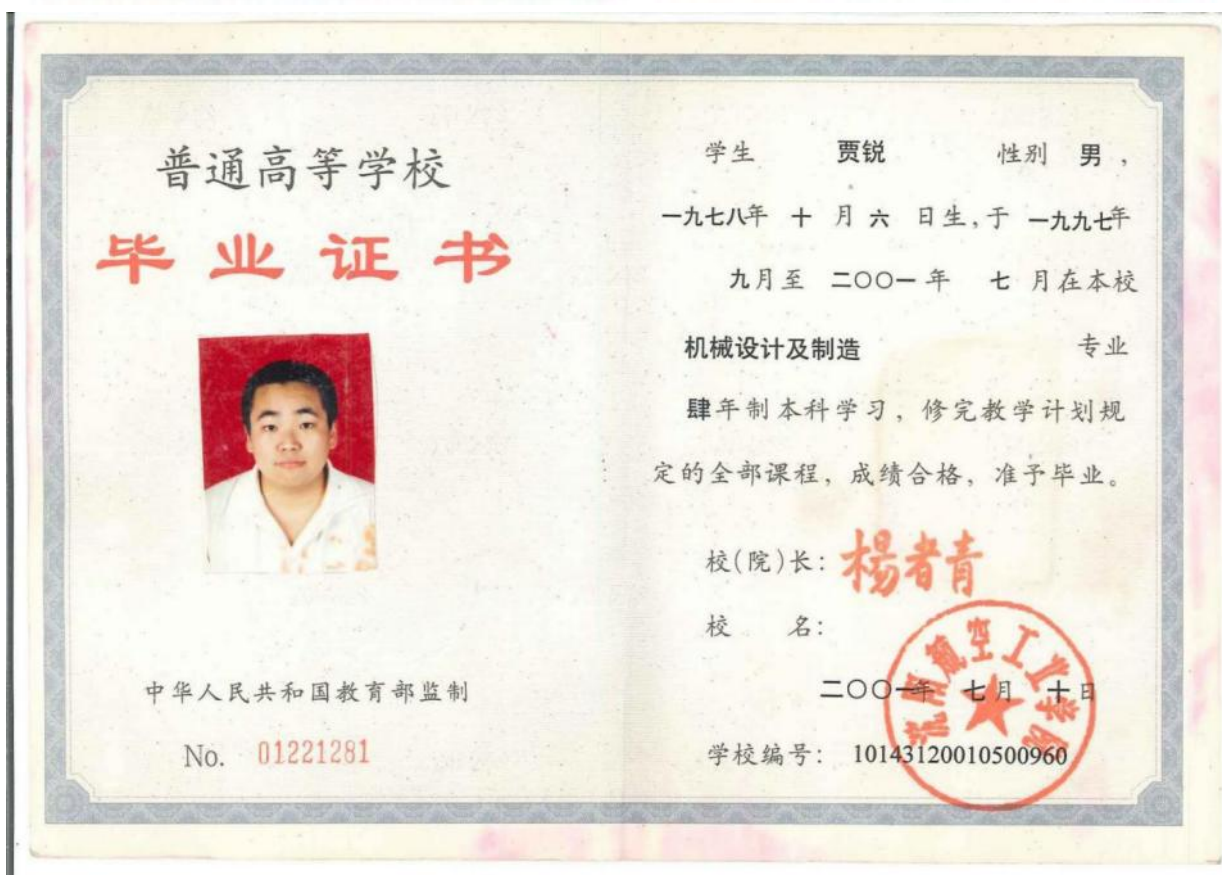 普通高等学校
毕业证书
中华人民共和国教育部监制
No. 01221281
学生 贾锐 性别 男，
一九七八年 十 月 六 日生，于 一九九七年
九月至 二〇〇一年 七 月在本校
机械设计及制造 专业
肆年制本科学习，修完教学计划规
定的全部课程，成绩合格，准予毕业。
校(院)长：楊者青
校 名：
沈阳航空工业学院
二〇〇一年 七月 十日
学校编号： 101431200105009​60